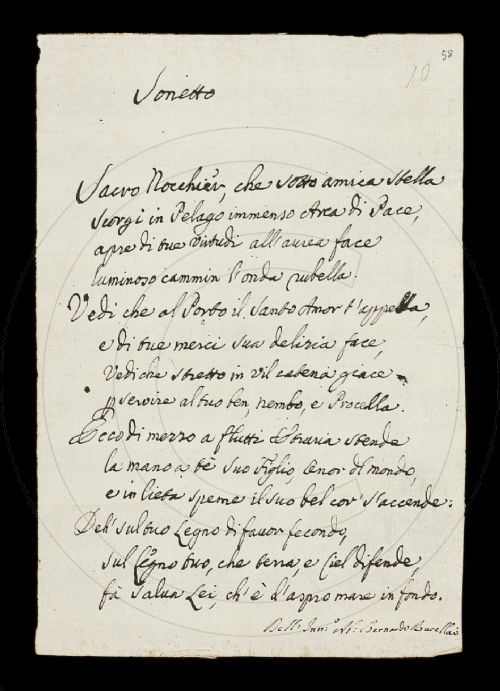 58
10
Sonetto
Sacro Nocchier, che sotto amica stella
scorgi in Pelago immenso Arca di Pace,
apre di tue virtudi all'aurea face
luminoso cammin l'onda rubella.
Vedi che al Porto il Santo Amor t'appella,
e di tue merci sua delizia face,
vedi che stretto in vil catena giace
p servire al tuo ben, nembo, e Procella.
Ecco di mezzo a flutti Etruria stende
la mano a te suo Figlio, onor dl mondo,
e in lieta speme il suo bel cor s'accende:
Deh! sul tuo Legno di favor fecondo,
sul Legno tuo, che terra, e Ciel difende,
fà salva Lei, ch'è d'aspro mare in fondo.
Bernardo Bucellai